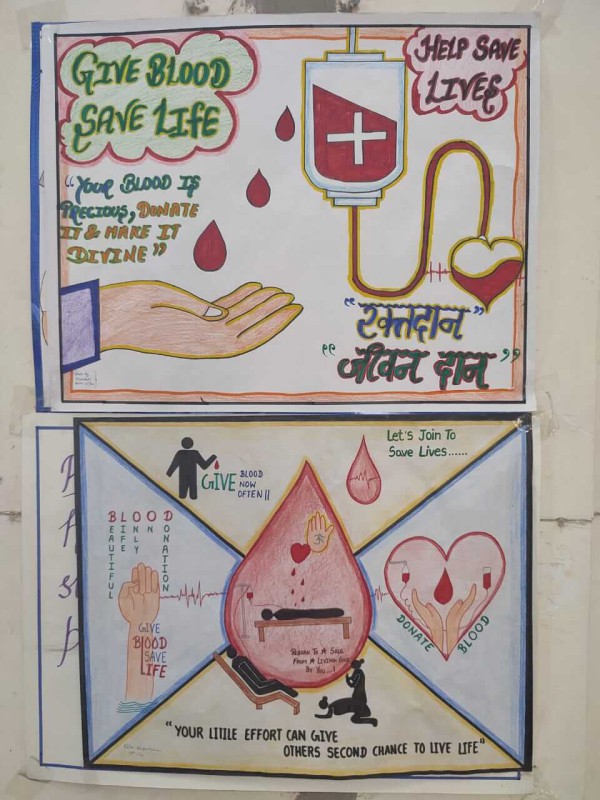 GIVE BLOOD
SAVE LIFE
HELP SAVE
LIVES
"YOUR BLOOD IS
PRECIOUS, DONATE
IT & MAKE IT
DIVINE"
"रक्तदान"
"जीवन दान"
Let's Join To
Save Lives......
GIVE BLOOD
NOW
OFTEN!!
BLOOD
BEAUTIFUL
LIFE
ONLY
ON
DONATION
GIVE
BLOOD
SAVE
LIFE
REBORN TO A SOUL
FROM A LIVING GOD
BY YOU...!
DONATE BLOOD
"YOUR LITTLE EFFORT CAN GIVE
OTHERS SECOND CHANCE TO LIVE LIFE"